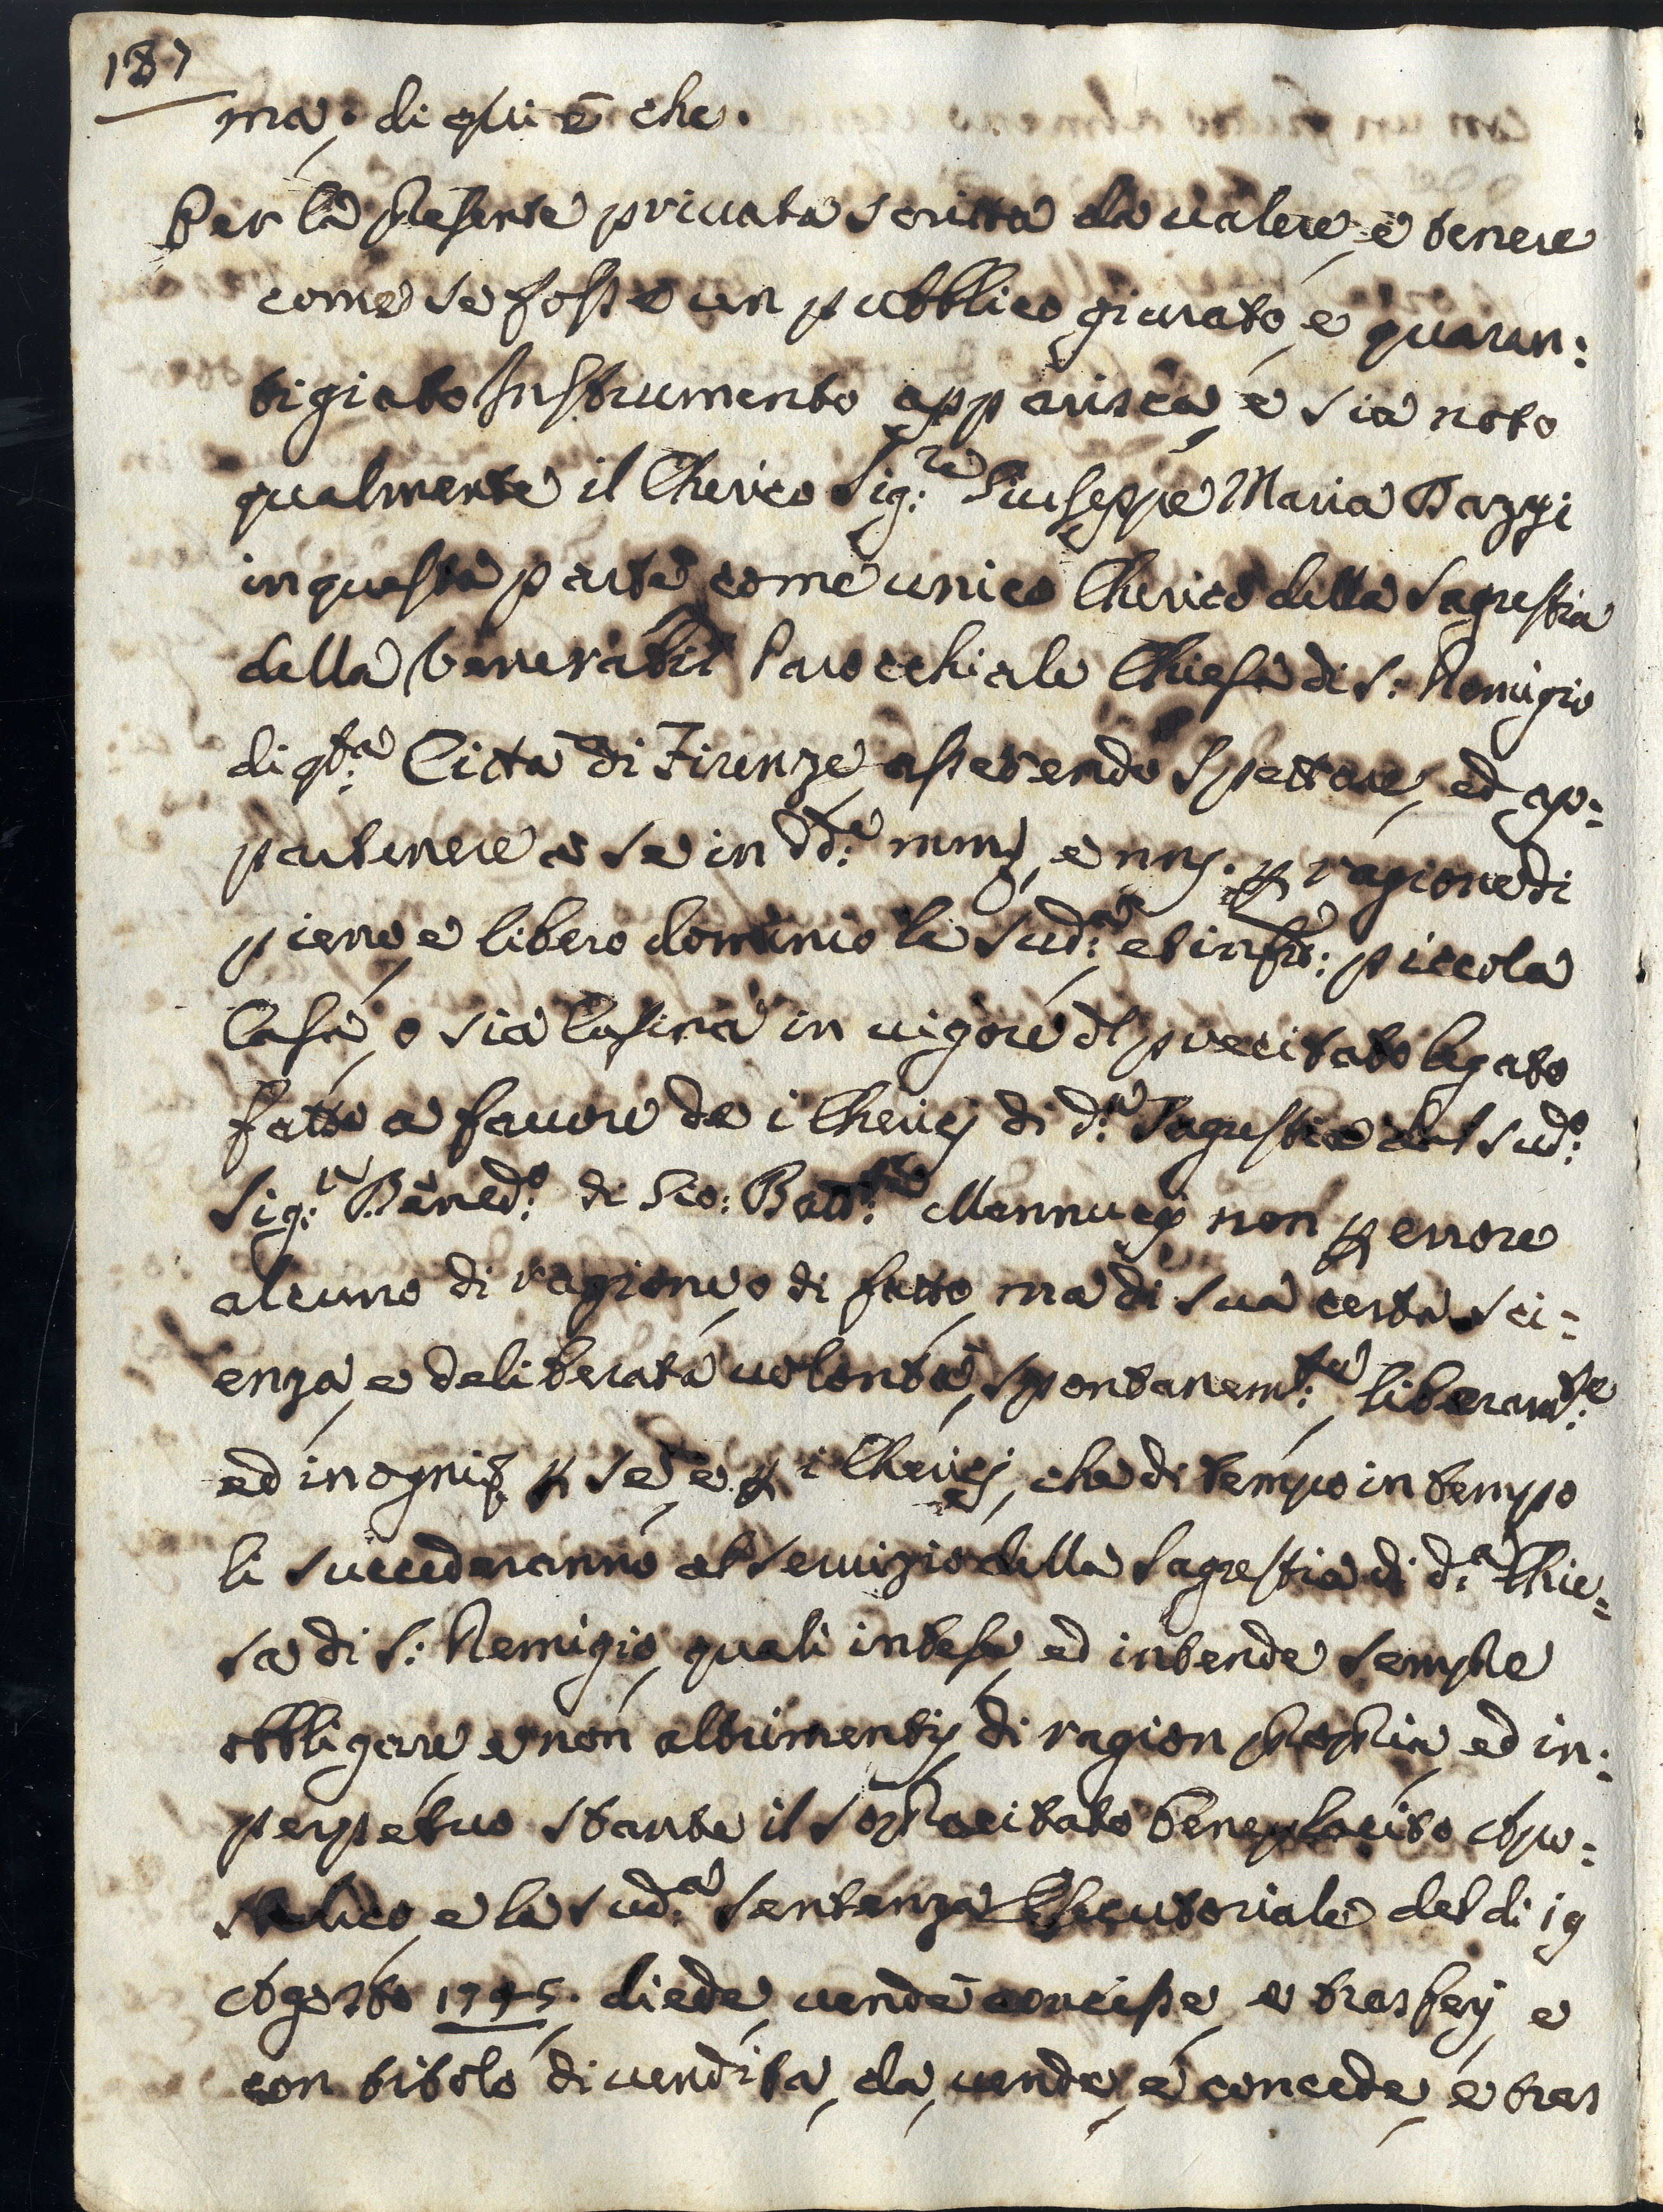 187
ma, di qui è che.
Per la presente privata scritta da valere, e tenere
come se fosse un pubblico giurato, e guaran:
tigiato Instrumento apparisca, e sia noto
qualmente il Cherico Sig:re Giuseppe Maria Bazzi
in questa parte come unico Cherico della Sagrestia
della Venerabil Parocchiale Chiesa di S: Remigio
di qta: Città di Firenze asserendo spettare, ed ap:
partenere a se in dd:e nni, e nni. p ragione di
pieno, e libero dominio la sud:a et infra: piccola
Casa, o sia Casina in vigore dl precitato legato
fatto a favore de i Cherici di d:a Sagrestia dal sud:o
Sig:re Bened:o di Gio: Batt:a Mannucci non p errore
alcuno di ragione, o di fatto, ma di sua certa sci:
enza, e deliberata volontà, spontanem:te, liberam:te
ed in ogni p se, e p i Cherici, che di tempo in tempo
li succederanno al servizio della Sagrestia di d:a Chie:
sa di S: Remigio, quali intese, ed intende sempre
obbligare, e non altrimenti, di ragion propria, ed in:
perpetuo stante il sopracitato beneplacito Apo:
stolico, e la sud:a sentenza Esecutoriale del dì 19
Agosto 1745. diede, vendè concesse, e trasferì, e
con titolo di vendita, da, vende, e concede, e tras